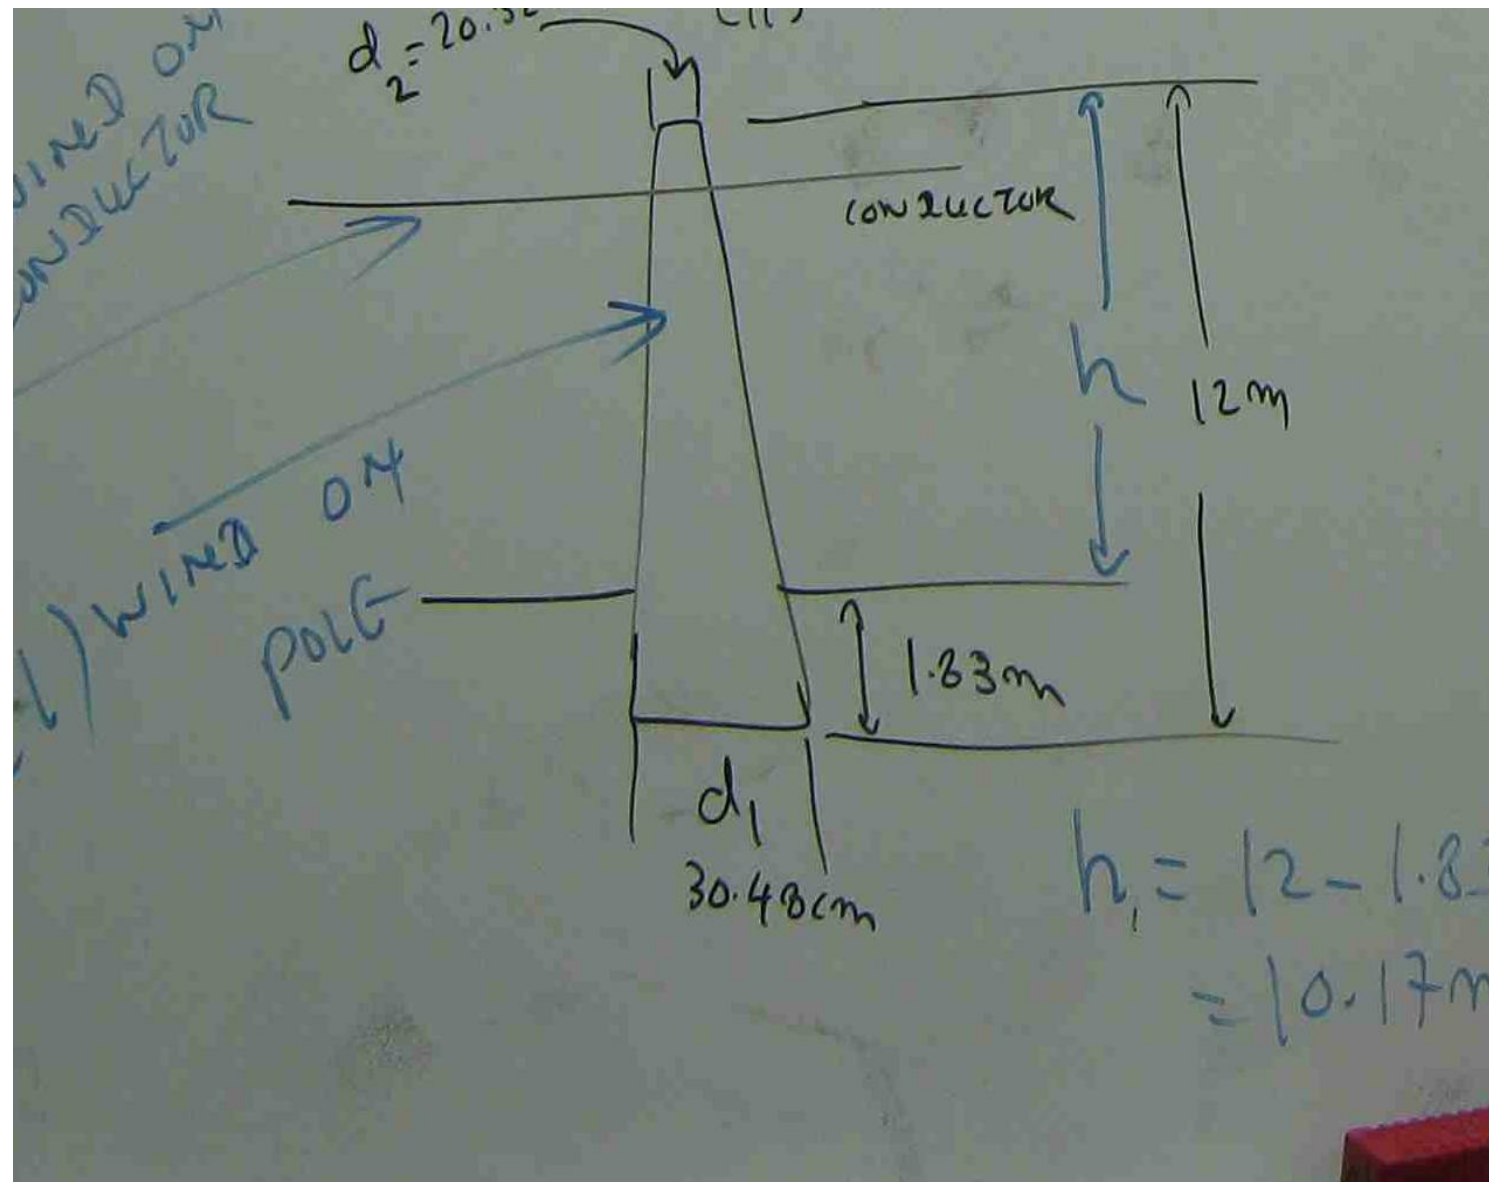 d₂ = 20.32
(11)
WIND ON
CONDUCTOR
CONDUCTOR
h
12m
1) WIND ON
POLE
1.83m
d₁
30.48cm
h₁ = 12 - 1.83
= 10.17m